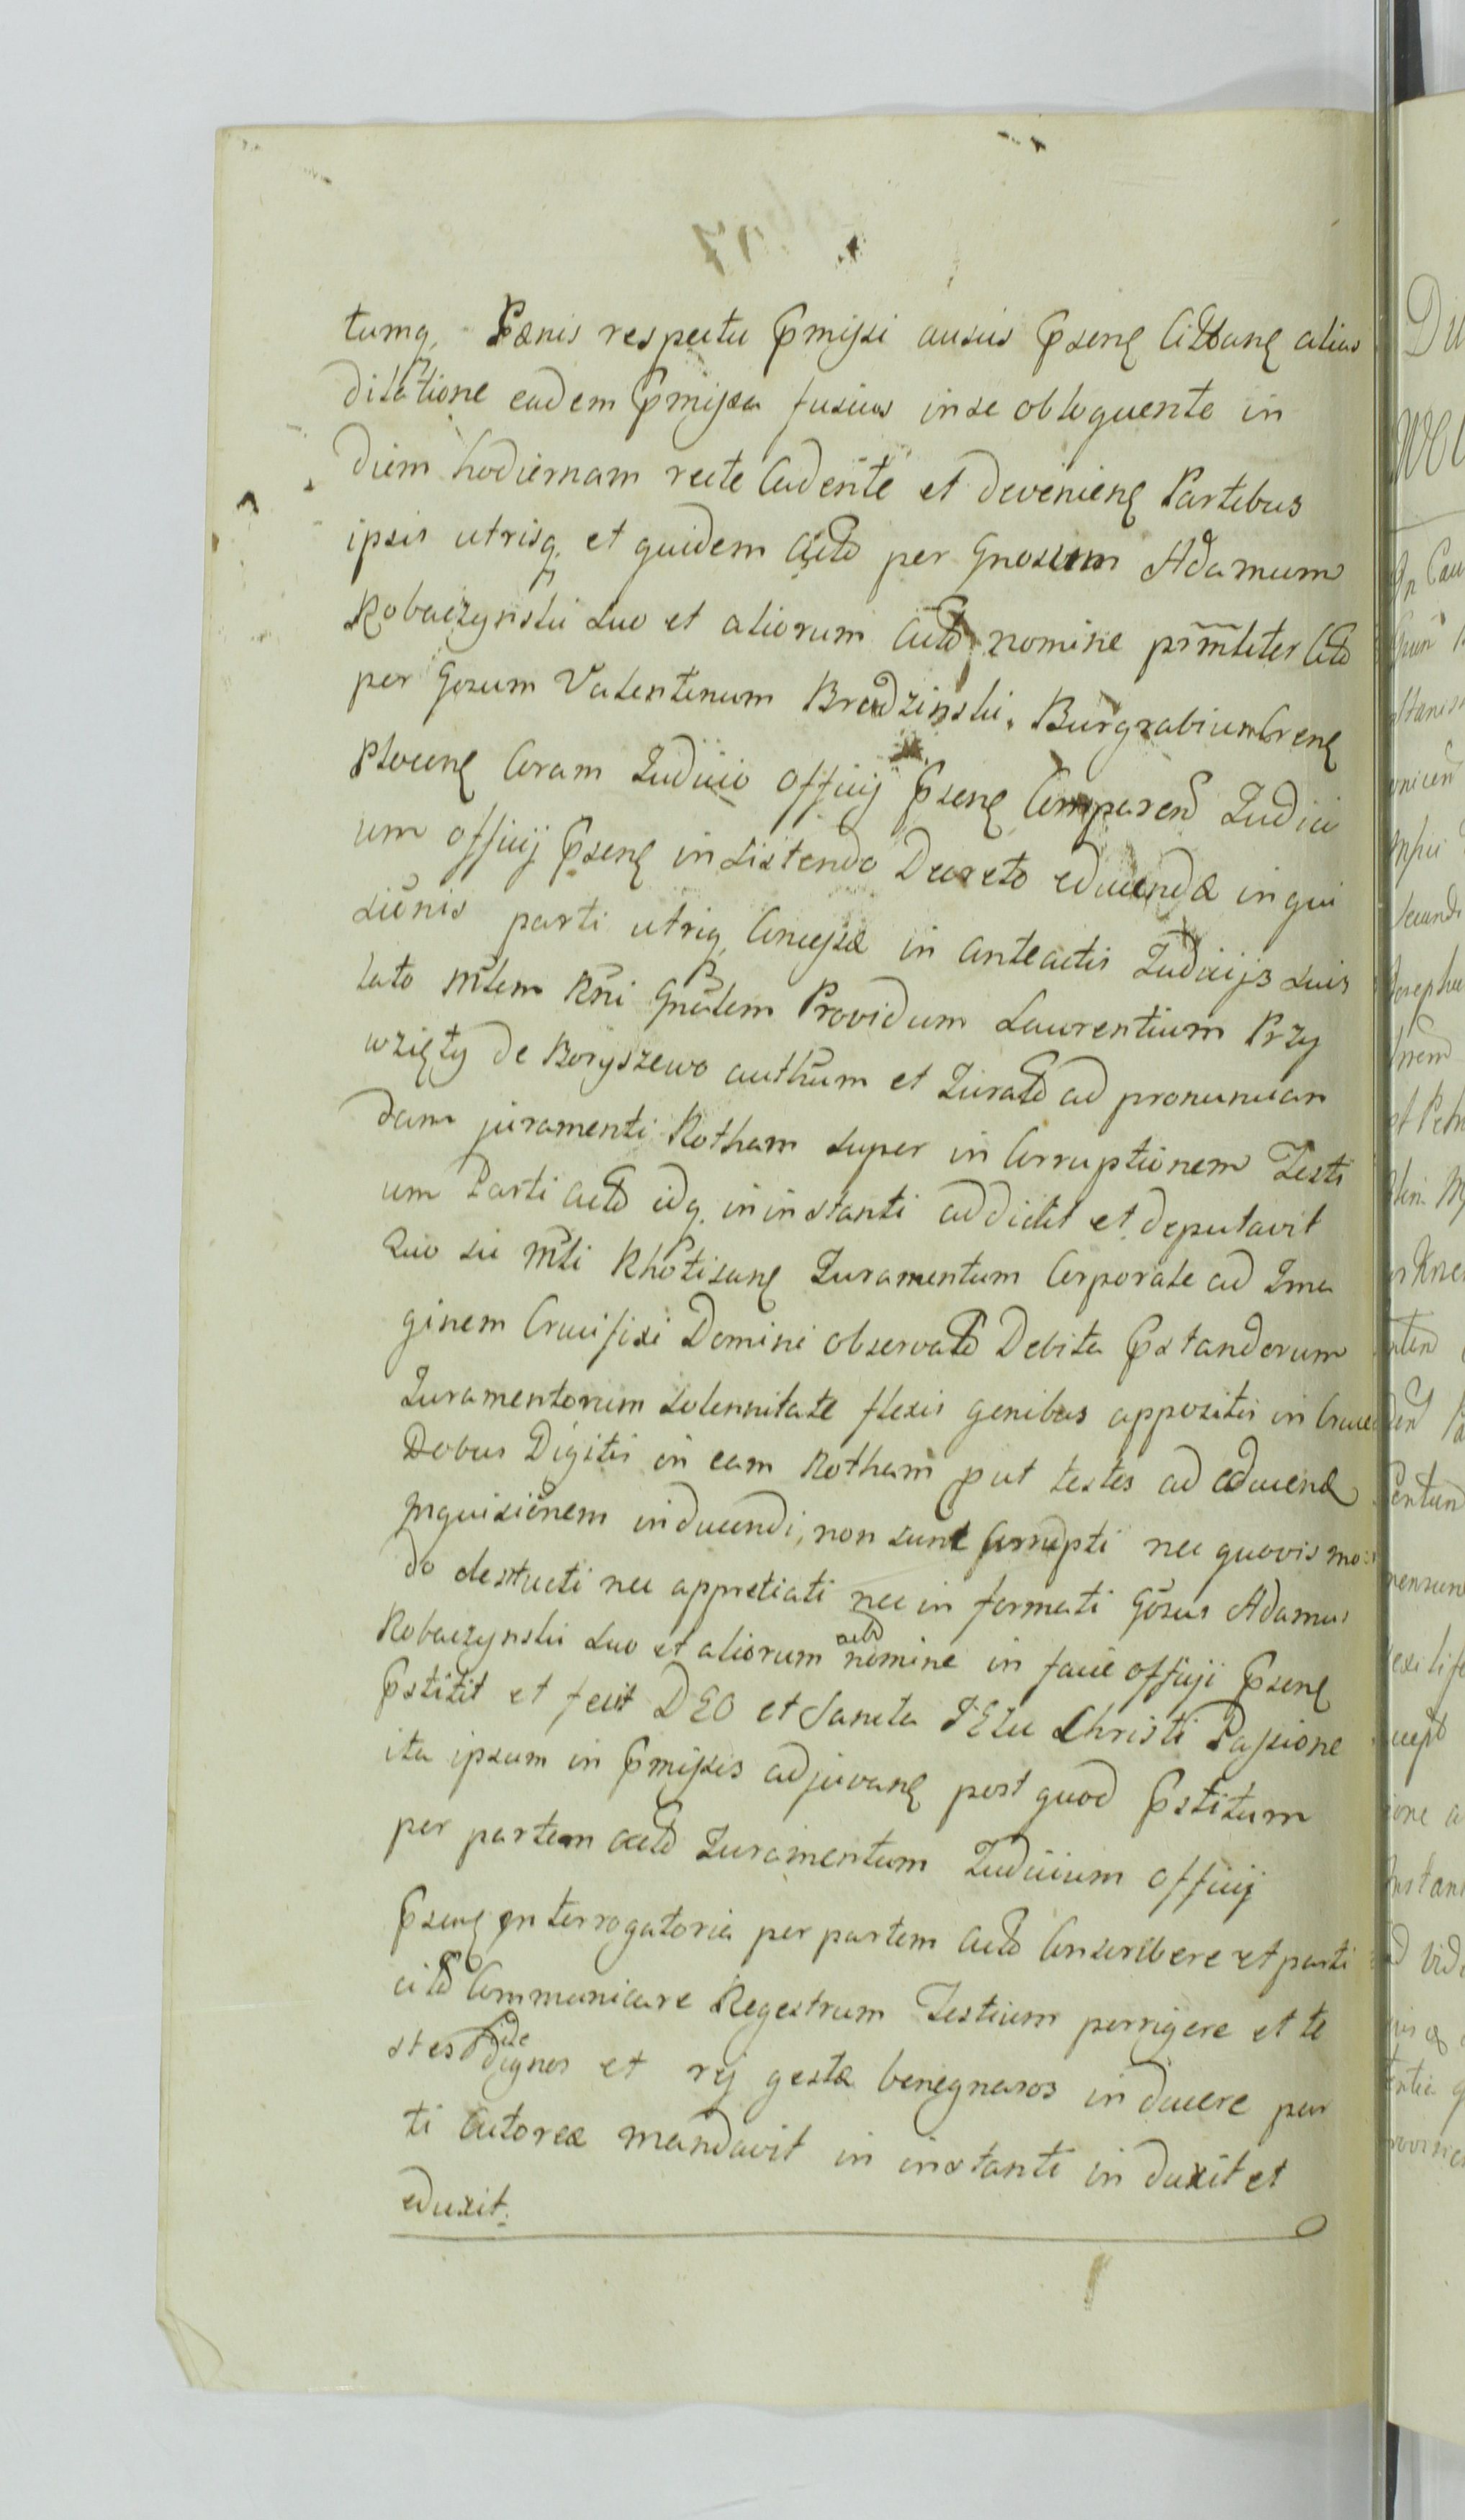 tumq, Pænis respectu Pmissi ausus Psenę Citanę alias
dilatione eadem Pmissa fusius in se obloquente in
diem hodiernam recte Cadente et devenienę Partibus
ipsis utrisq, et quidem Acto per Gnosum Adamum
Robaczynski suo et aliorum Acto nomine prmliter Cito
per Gosum Valentinum Brodzinski, Burgrabium Crenę
Plocenę Coram Judicio officij Psenę Comparend Judici
um officij Psenę insistendo Decreto educendæ inqui
siōnis parti utriq, Concessæ in anteactis Judicijs suis
lato Mltem Rni Gnalem Providum Laurentium Przy
wzięty de Boryszewo authum et Jurato ad pronuncian
dam juramenti Rotham super in Corruptionem Testi
um Parti Acto idq, in instanti addidit et deputavit
Quo sic Mlti Rhotisanę Juramentum Corporale ad Ima
ginem Crucifixi Domini observato Debita Pstandorum
Juramentorum solennitate flexis genibus appositis in Cruce
Dobus Digitis in eam Rotham put testes ad educend
Inquisiōnem inducendi, non sunt Corrupti nec quovis mo
do destructi nec appretiati nec in formati Gosus Adamus
Robaczynski suo et aliorum acto nomine in facie officji Psenę
Pstitit et fecit DEO et Sancta JESu Christi Passione
ita ipsum in Pmissis adjuvanę post quod Pstitum
per partem acto Juramentum Judicium officij
Psenę Interrogatoria per partem Acto Conscribere et parti
cito Communicare Regestrum Testium porrigere et te
stes fide dignos et rej gestæ benegnaros inducere par
ti Actoreæ mandavit in instanti in duxit et
eduxit.